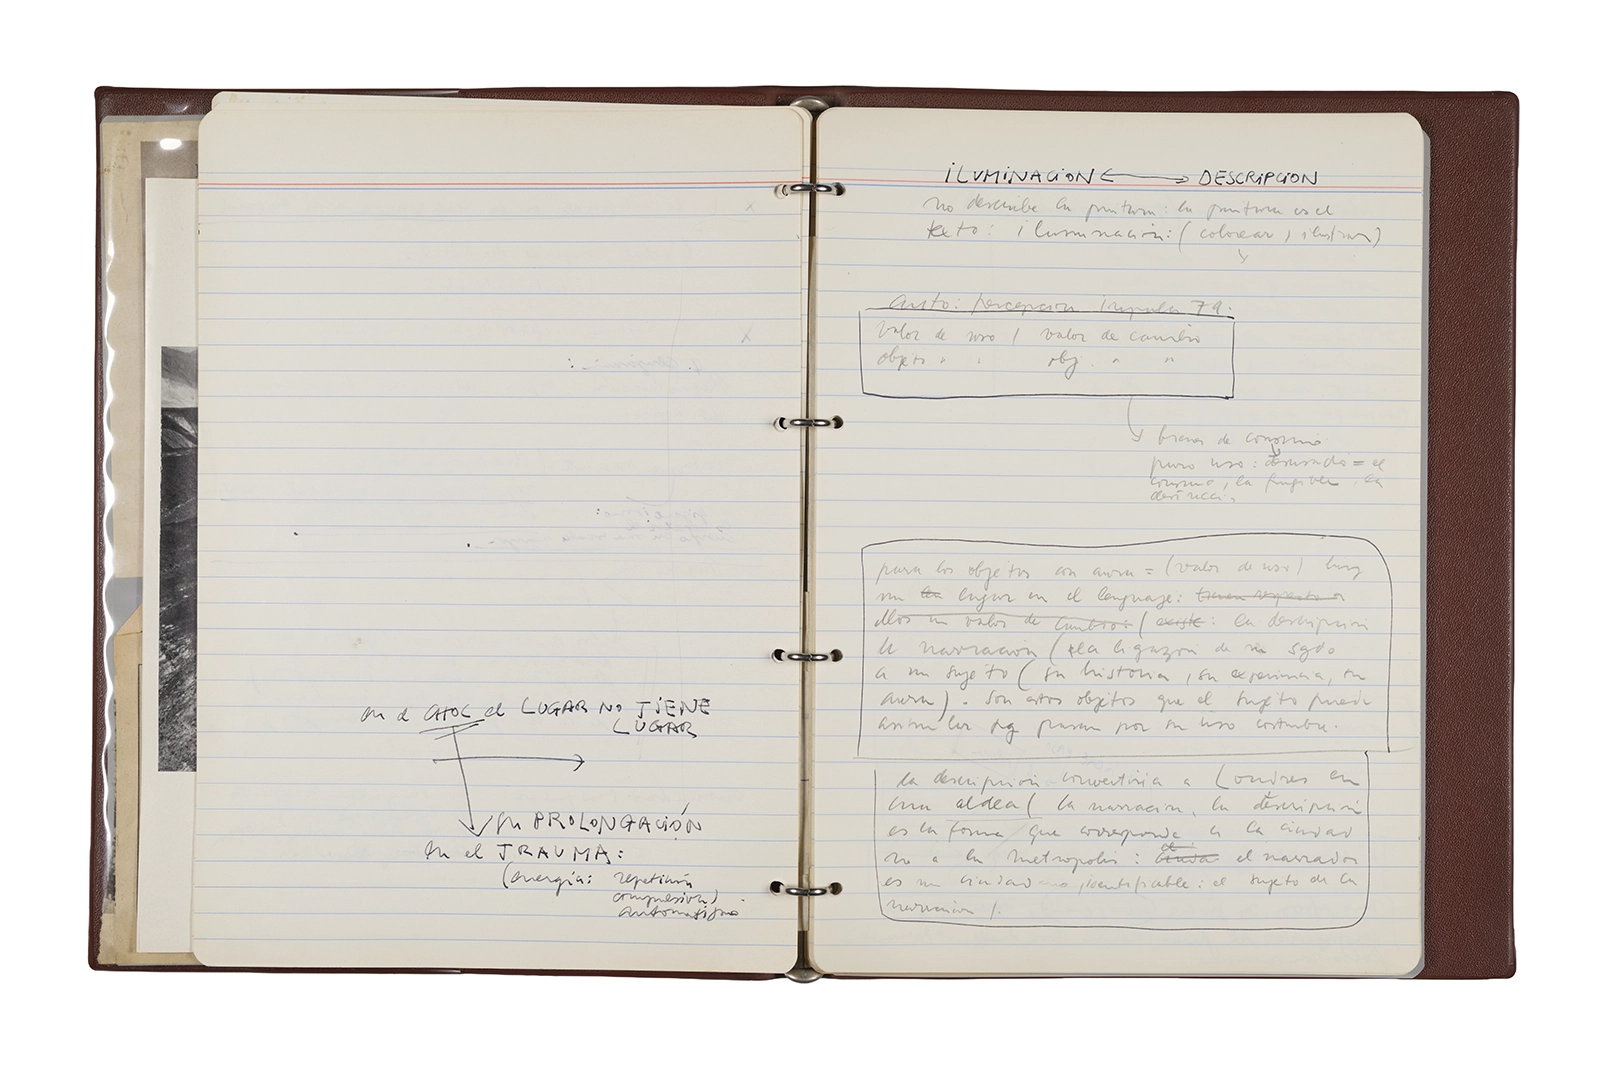 en el CHOC el LUGAR NO TIENE
LUGAR
su PROLONGACIÓN
en el TRAUMA:
(energía: repetición
compulsión)
automatismo
iLUMiNACiON ⟷ DESCRIPCION
no describe la pintura: la pintura es el
texto: iluminación: (colorear, ilustrar)
percepcion 79.
valor de uso / valor de cambio
objeto " " obj. " "
bienes de consumo
puro uso: desusado = el
consumo, la fungible, la
destrucci.
para los objetos con aura = (valor de uso) hay
un la lugar en el lenguaje: tienen respecto a
ellos un valor de cambio: (existe: la descripcion
la narración (la ligazón de un sgdo
a un sujeto (su historia, su experiencia, su
aura). Son estos objetos que el sujeto puede
asimilar pq pasan por su uso costumbre.
la descripción convertiria a Londres en
una aldea (la narracion, la descripción
es la forma que corresponde a la ciudad
no a la metropolis: el narrador
es un ciudadano, identificable: el sujeto de la
narracion).